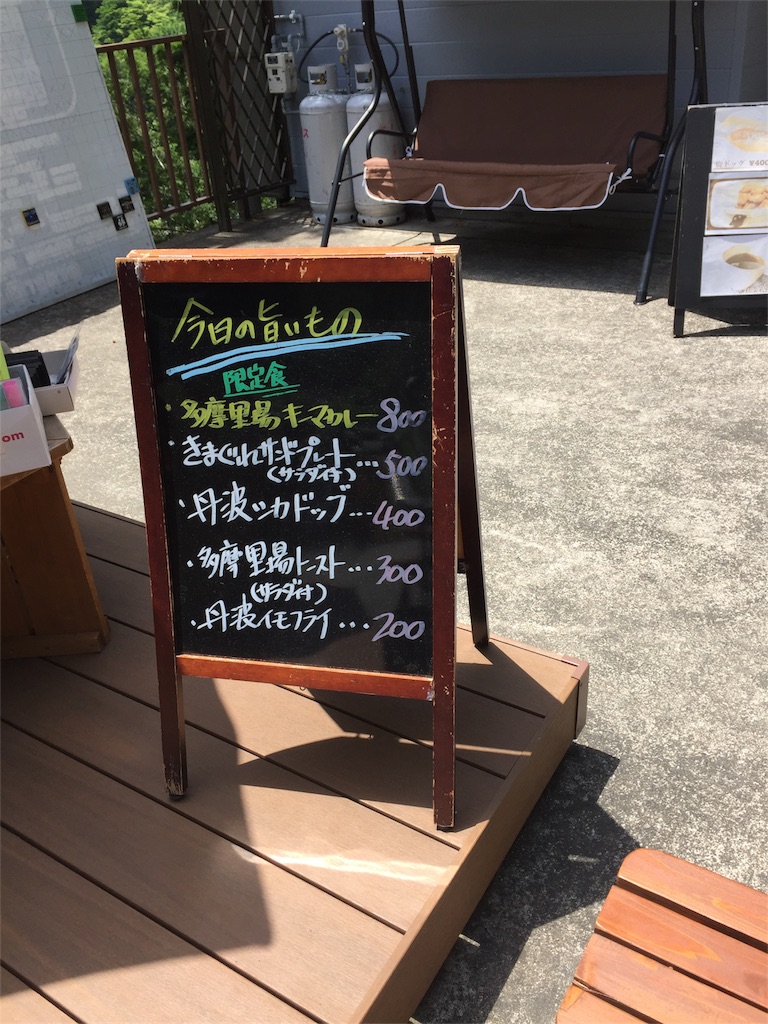 今日の旨いもの
限定食
・多摩里場キーマカレー 800
・きまぐれサンドプレート…500
(サラダ付)
・丹波シカドッグ…400
・多摩里場トースト…300
(サラダ付)
・丹波イモフライ…200
¥400
om